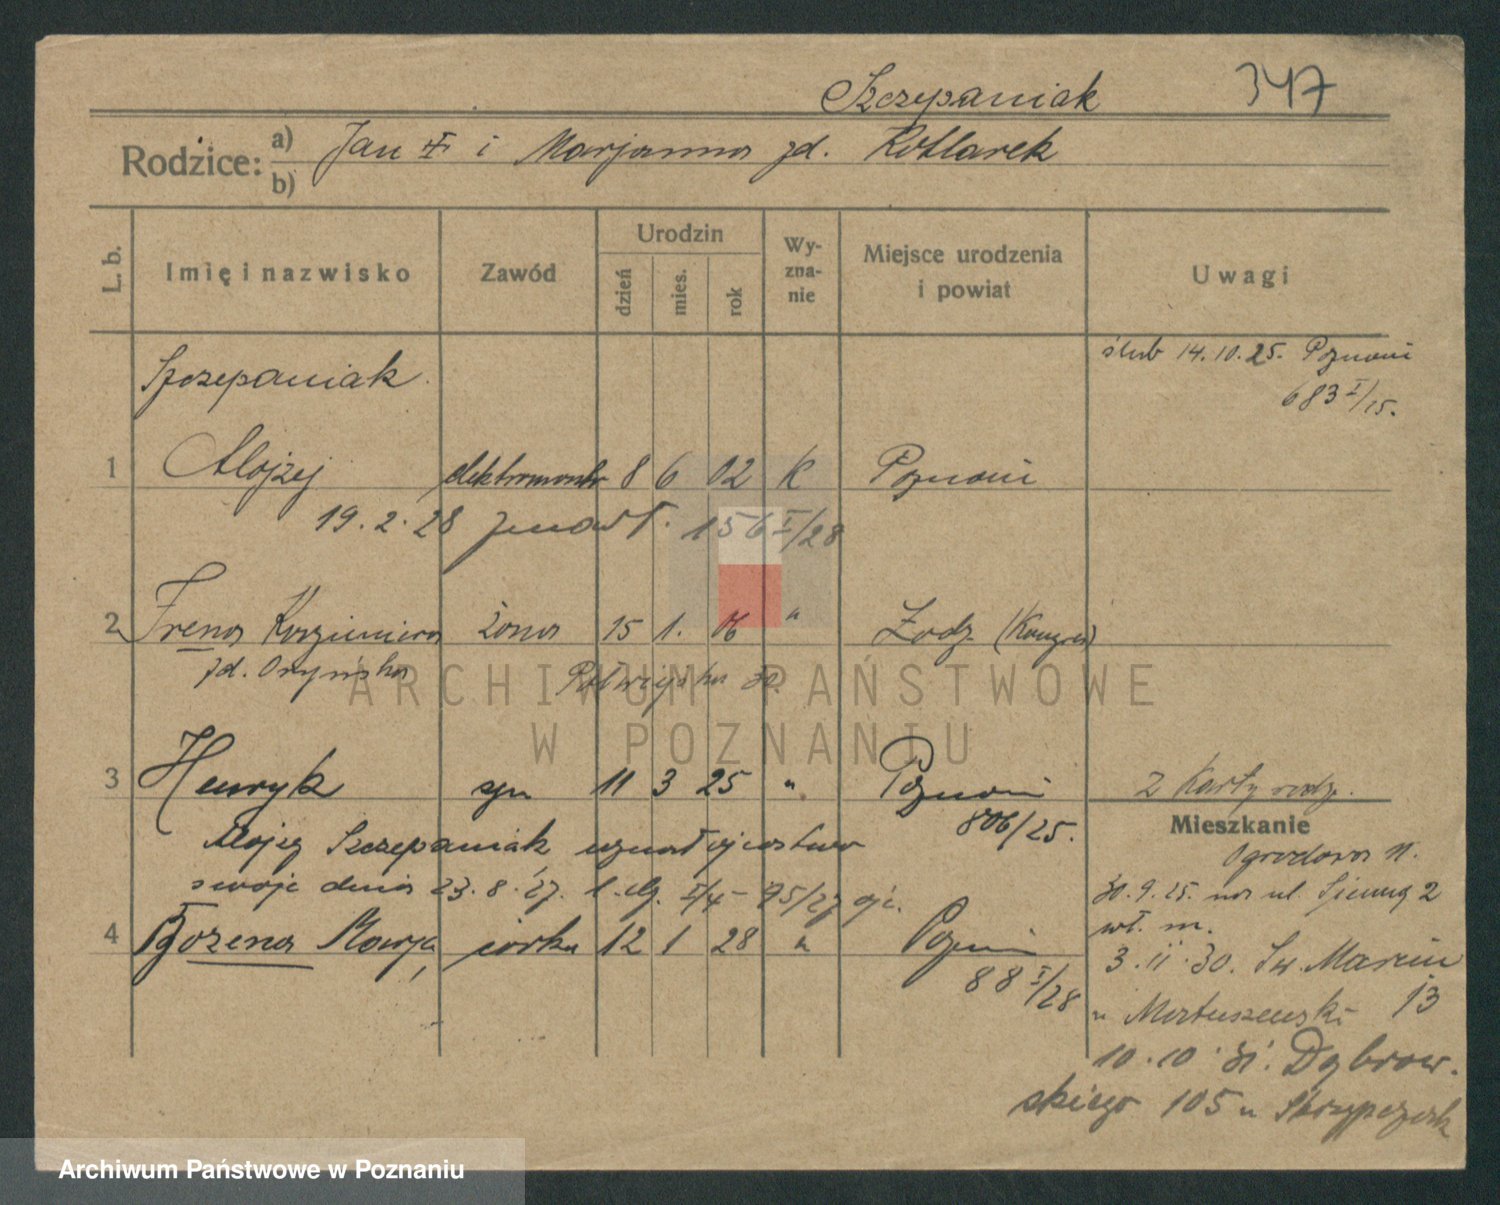 Szczepaniak 347
Rodzice: a) Jan i Marjanna zd. Kotlarek
b)
L. b. Imię i nazwisko Zawód Urodzin dzień mies. rok Wyznanie Miejsce urodzenia i powiat Uwagi
ślub 14.10.25. Poznań
683 I/25.
Szczepaniak.
1 Alojzej elektromontr 8 6 02 K Poznań
19.2.28 zmarł. 156 I/28
2 Irena Kazimiera żona 15 1. 06 " Łodz (Kongres)
zd. Oryńska 30.
3 Henryk syn 11 3 25 " Poznań
806/25.
2 Karty rodz.
Alojzy Szczepaniak uznał ojcostwo
swoje dnia 23.8.27. 95/27
4 Bożena Marja córka 12 1 28 " Poznań
88 I/28
Mieszkanie
Ogrodowa 11.
30.9.25. na ul. Sienną 2
wł. m.
3.11.30. Św. Marcin 13
u Matuszewski
10.10.31. Dąbrow-
skiego 105 u Skrzypczak
ARCHIWUM PAŃSTWOWE
W POZNANIU
Archiwum Państwowe w Poznaniu